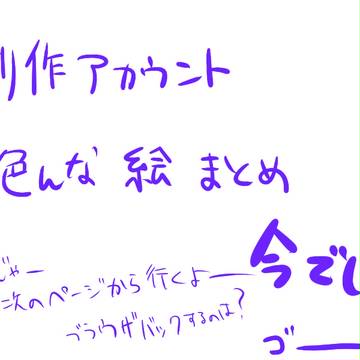 創作アカウント
色んな 絵 まとめ
じゃー
次のページから行くよー
ブラウザバックするのは?
今でし
ゴー